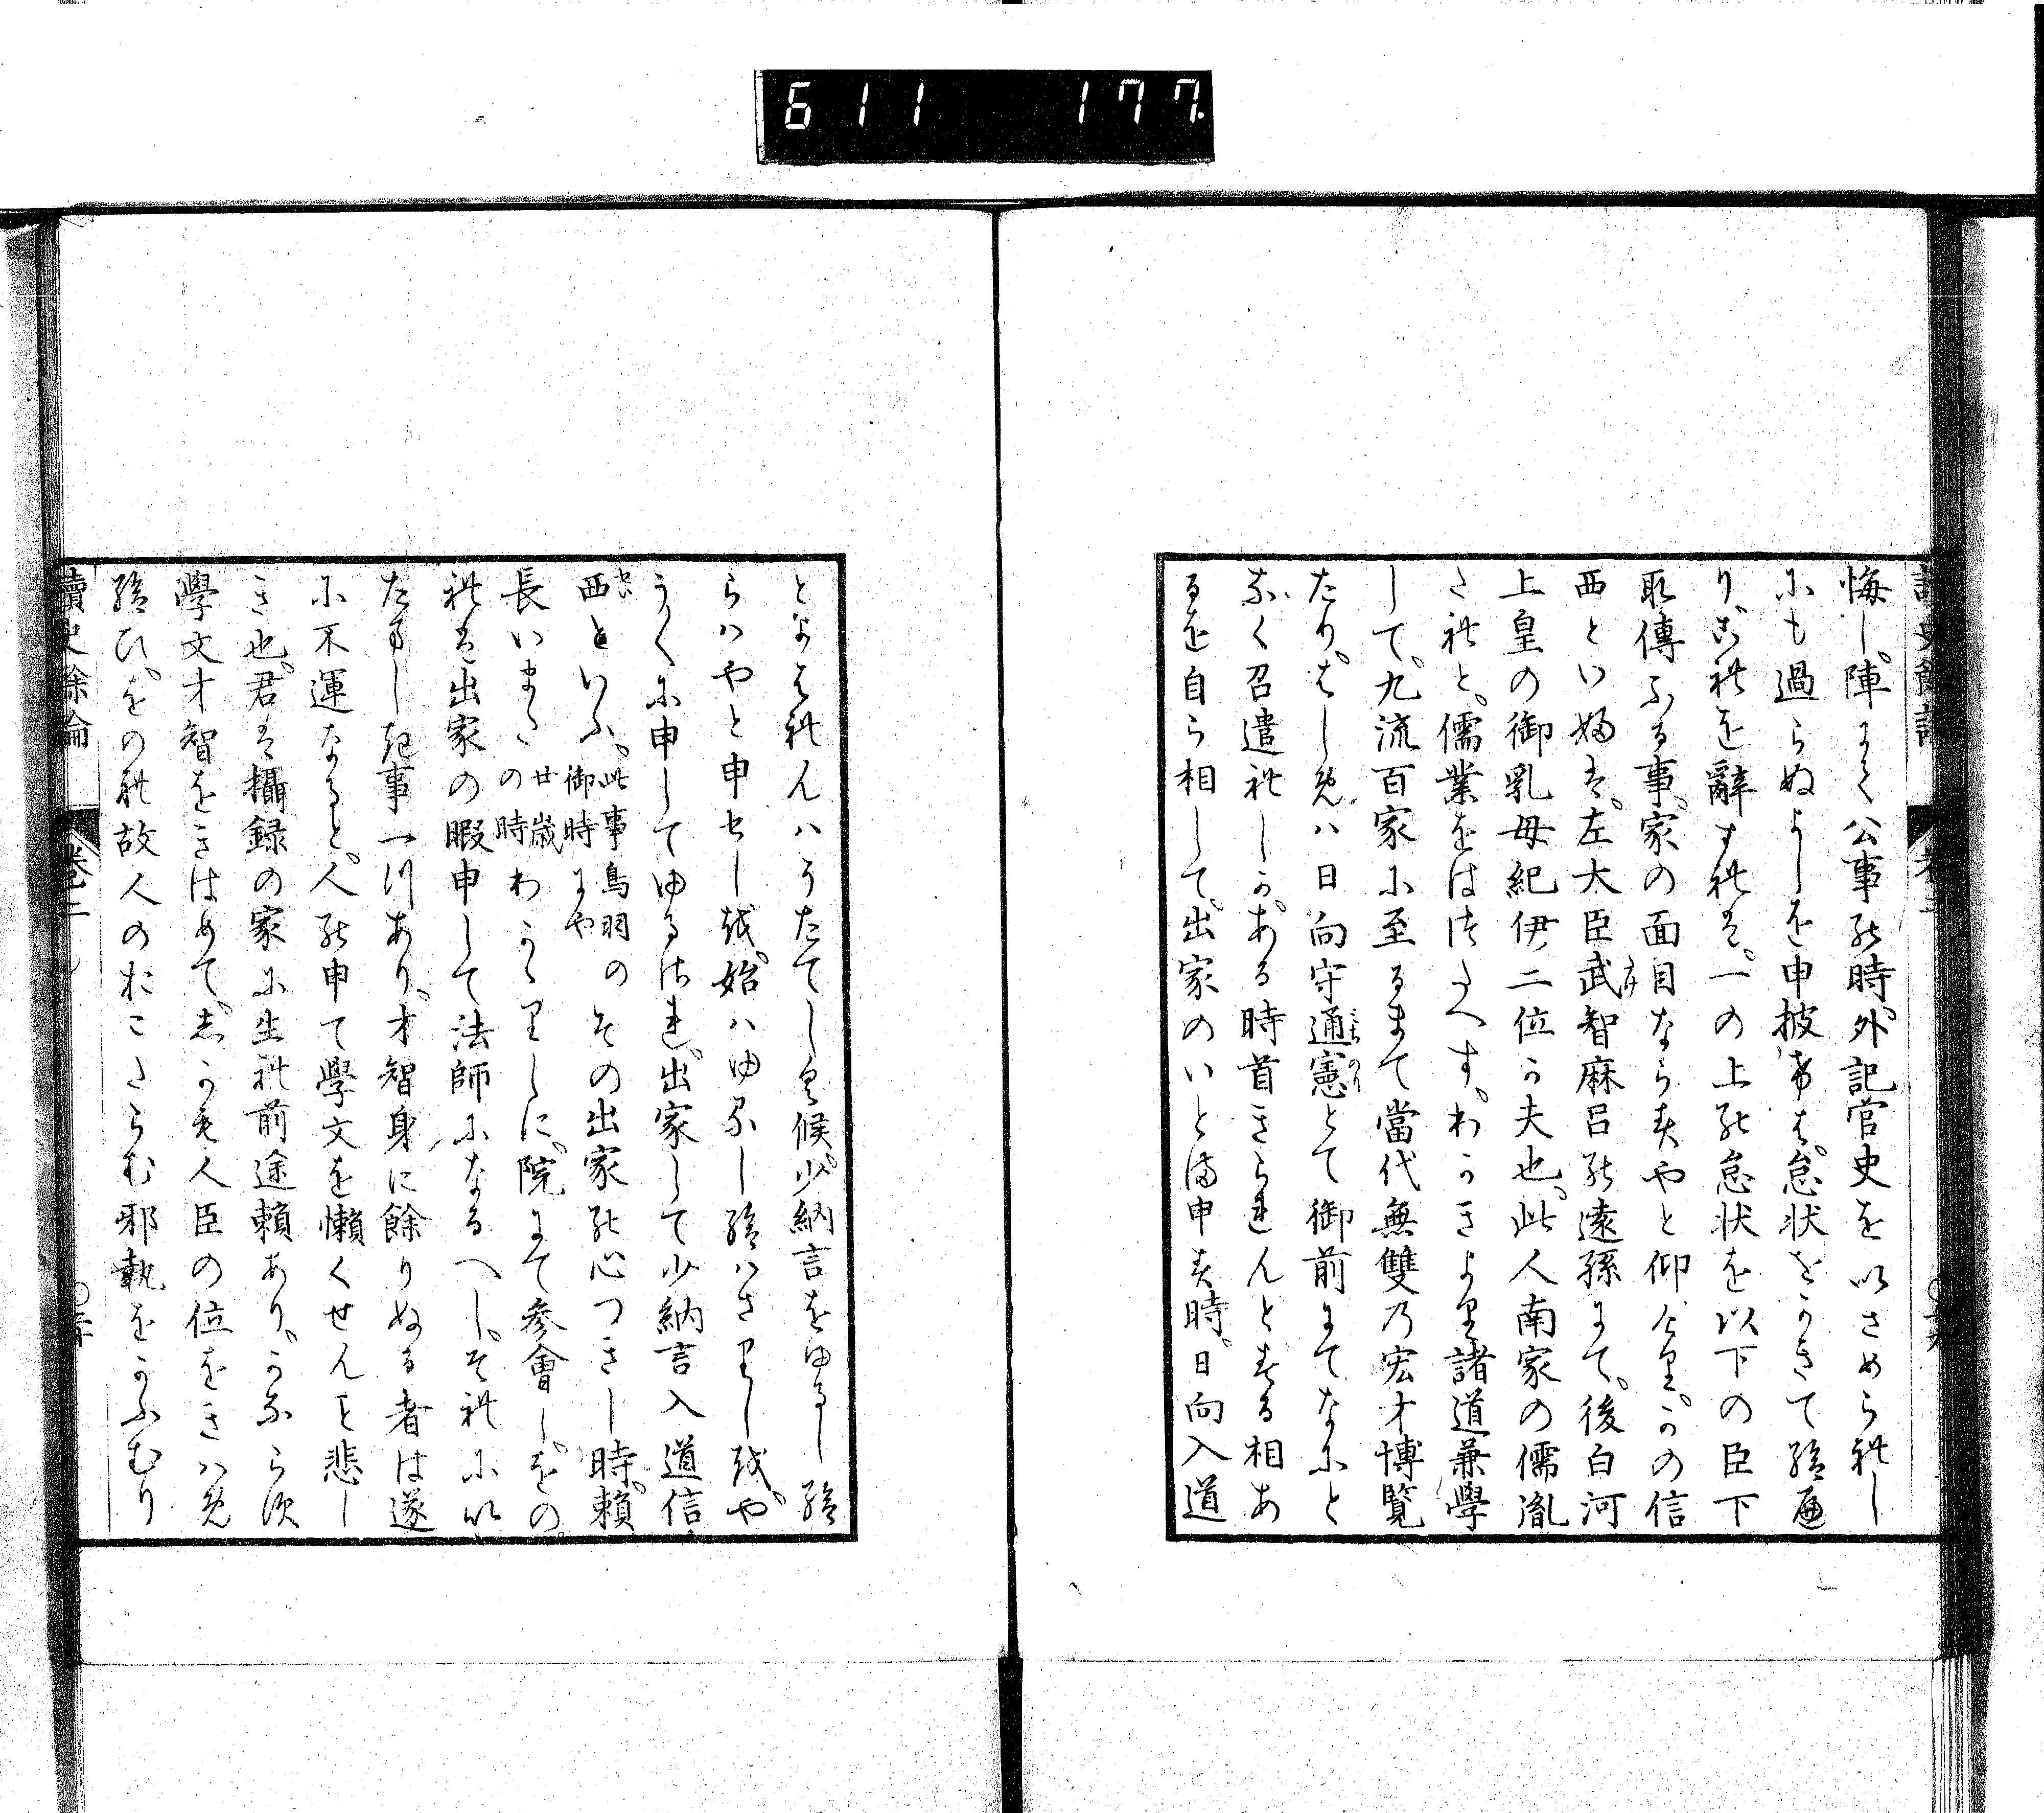 611 177
悔し。陣にて公事の時。外記官史を以さめられし
にも過らぬよしを申披けは。怠状をかきて給
り。これを辭すれは。一の上の怠状を以下の臣下
取傳ふる事。家の面目ならすやと仰らる。かの信
西といふは。左大臣武智麻呂の遠孫にて。後白河
上皇の御乳母紀伊二位か夫也。此人南家の儒胤
たれと。儒業をはつたへす。わかきより諸道兼學
して。九流百家に至るまて當代無雙乃宏才博覽
たり。はしめハ日向守通憲とて御前にてなにと
なく召遣れしか。ある時首きられんとする相あ
るを自ら相して。出家のいとま申す時。日向入道
となはれんハうたてしく候。少納言をゆるし給
らハやと申せしを。始ハゆるし給ハさりしを。や
うくに申してゆるされ。出家して少納言入道信
西といふ。此事鳥羽の御時にやその出家の心つきし時。頼
長いまた廿歳の時わかゝりしに。院にて參會し。その
れは出家の暇申して法師になるへし。それに以
たましき事一つあり。才智身に餘りぬる者は遂
に不運なると。人の申て學文を懶くせんと悲し
き也。君は攝録の家に生れ前途頼あり。かならす
學文才智をきはめて。しかも人臣の位をきハめ
給ひ。をのれ故人のおこさらむ邪執をかふむり
讀史餘論 卷二